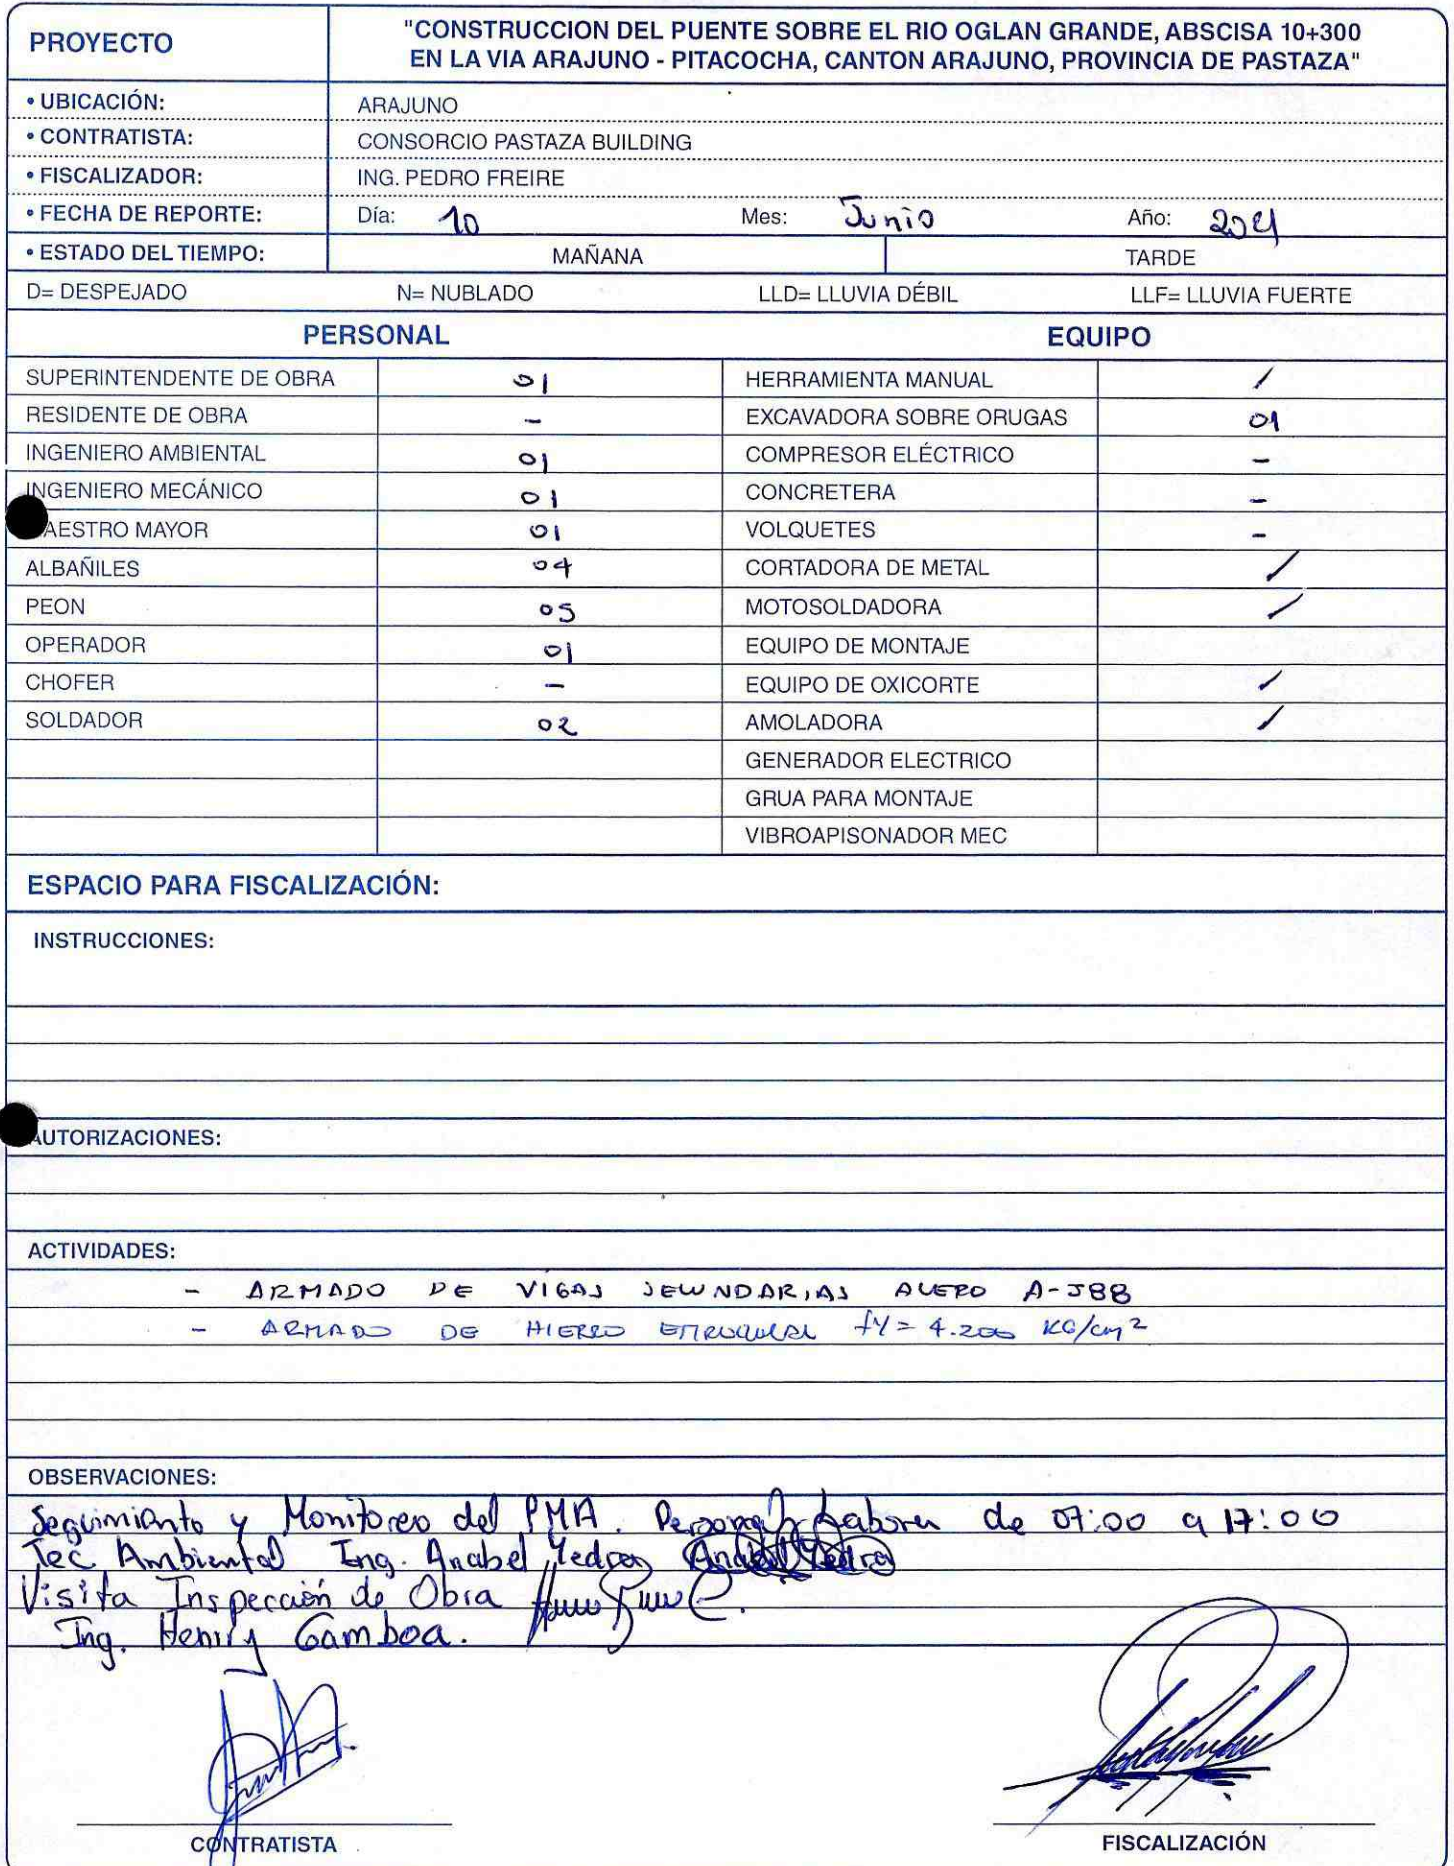 PROYECTO
"CONSTRUCCION DEL PUENTE SOBRE EL RIO OGLAN GRANDE, ABSCISA 10+300
EN LA VIA ARAJUNO - PITACOCHA, CANTON ARAJUNO, PROVINCIA DE PASTAZA"
• UBICACIÓN: ARAJUNO
• CONTRATISTA: CONSORCIO PASTAZA BUILDING
• FISCALIZADOR: ING. PEDRO FREIRE
• FECHA DE REPORTE: Día: 10 Mes: Junio Año: 2021
• ESTADO DEL TIEMPO: MAÑANA TARDE
D= DESPEJADO N= NUBLADO LLD= LLUVIA DÉBIL LLF= LLUVIA FUERTE
PERSONAL EQUIPO
SUPERINTENDENTE DE OBRA 01 HERRAMIENTA MANUAL /
RESIDENTE DE OBRA - EXCAVADORA SOBRE ORUGAS 01
INGENIERO AMBIENTAL 01 COMPRESOR ELÉCTRICO -
INGENIERO MECÁNICO 01 CONCRETERA -
AESTRO MAYOR 01 VOLQUETES -
ALBAÑILES 04 CORTADORA DE METAL /
PEON 05 MOTOSOLDADORA /
OPERADOR 01 EQUIPO DE MONTAJE
CHOFER - EQUIPO DE OXICORTE /
SOLDADOR 02 AMOLADORA /
GENERADOR ELECTRICO
GRUA PARA MONTAJE
VIBROAPISONADOR MEC
ESPACIO PARA FISCALIZACIÓN:
INSTRUCCIONES:
AUTORIZACIONES:
ACTIVIDADES:
- ARMADO DE VIGAS SECUNDARIAS ACERO A-588
- ARMADO DE HIERRO ESTRUCTURAL fY= 4.200 KG/cm²
OBSERVACIONES:
Seguimiento y Monitoreo del PMA. Personal Labora de 07:00 a 17:00
Tec Ambiental Ing. Anabel
Visita Inspección de Obra
Ing. Henry Gamboa.
CONTRATISTA FISCALIZACIÓN